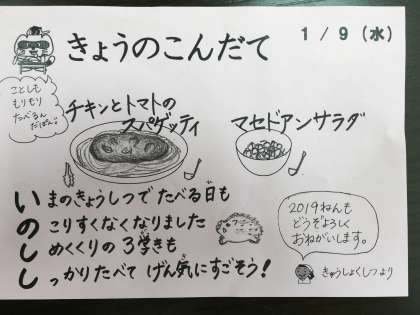 きょうのこんだて
1/9(水)
ことしも
もりもり
たべるん
だぱん♪
チキンとトマトの
スパゲッティ
マセドアンサラダ
いまのきょうしつでたべる日も
のこりすくなくなりました
しめくくりの3学きも
しっかりたべて げん気にすごそう!
2019ねんも
どうぞよろしく
おねがいします。
きゅうしょくしつより